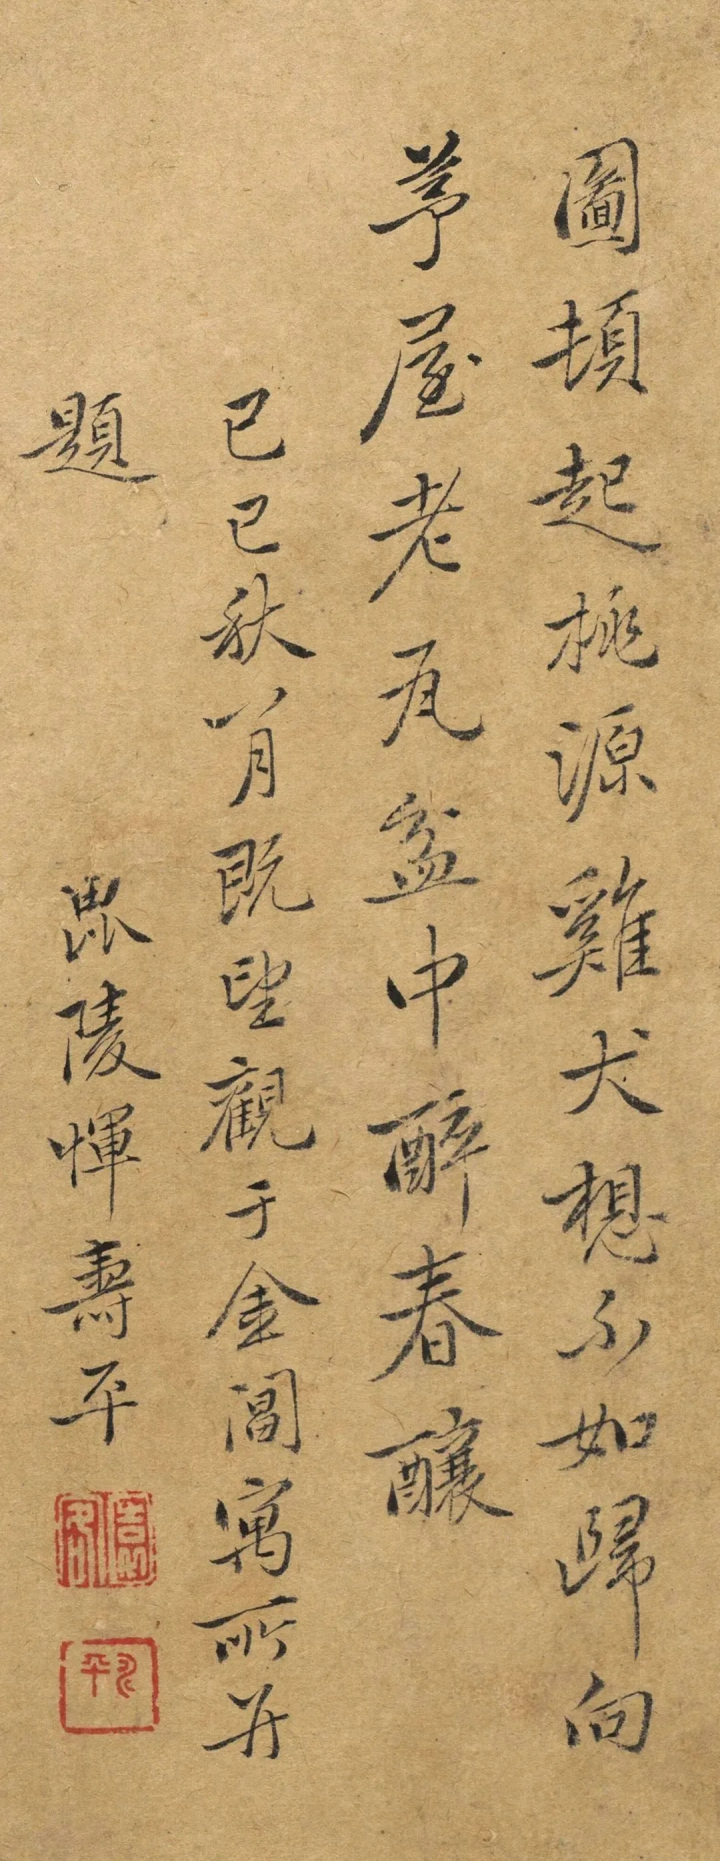 圖頓起桃源雞犬想不如歸向
茅屋老瓦盆中醉春釀
己巳秋八月既望觀于金閶寓所并
題
毘陵惲壽平